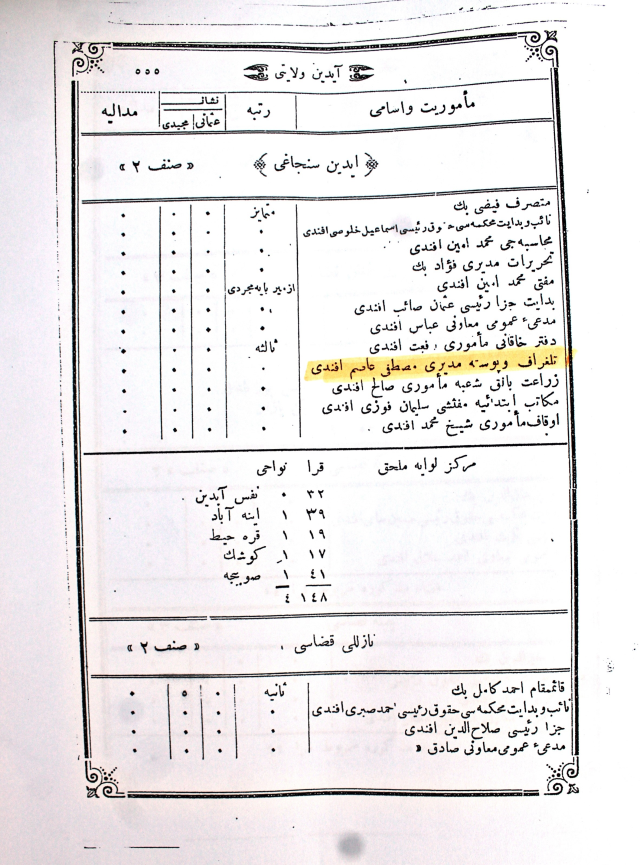 آیدین ولایتی
٥٥٥
مأموریت واسامی رتبه نشانـ عثمانی مجیدی مدالیه
ایدین سنجاغی « صنف ٢ »
متصرف فیضی بك متمایز
نائب وبدایت محكمه سی حقوق رئیسی اسماعیل خلوصی افندی
محاسبه جی محمد امین افندی
تحریرات مدیری فؤاد بك
مفتی محمد امین افندی ازمیر پایهٔ مجردی
بدایت جزا رئیسی عثمان صائب افندی
مدعیء عمومی معاونی عباس افندی
دفتر خاقانی مأموری رفعت افندی ثالثه
تلغراف وپوسته مدیری مصطفی عاصم افندی
زراعت بانق شعبه مأموری صالح افندی
مكاتب ابتدائیه مفتشی سلیمان فوزی افندی
اوقاف مأموری شیخ محمد افندی
مركز لوایه ملحق قرا نواحی
٣٢ ٠ نفس آیدین
٣٩ ١ اینه آباد
١٩ ١ قره حیط
١٧ ١ كوشك
٤١ ١ صوبیجه
١٤٨ ٤
نازللی قضاسی « صنف ٢ »
قائمقام احمد كامل بك ثانیه ٥
نائب وبدایت محكمه سی حقوق رئیسی احمد صبری افندی
جزا رئیسی صلاح الدین افندی
مدعیء عمومی معاونی صادق «